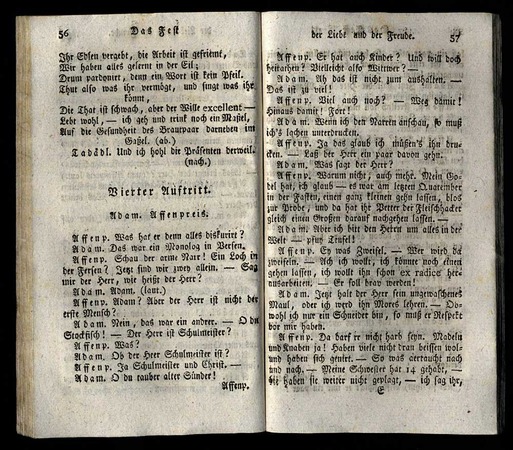 56 Das Fest
Ihr Edlen vergebt, die Arbeit ist gefriemt,
Wir haben alles gelernt in der Eil;
Drum pardonirt, denn ein Wort ist kein Pfeil.
Thut also was ihr vermögt, und singt was ihr
könnt,
Die That ist schwach, aber der Wille excellent —
Lebt wohl, — ich geh und trink noch ein Maßel,
Auf die Gesundheit des Brautpaar darneben im
Gaßel. (ab.)
Tadädl. Und ich hohl die Präsenten derweil.
(nach.)
Vierter Auftritt.
Adam. Affenpreis.
Affenp. Was hat er denn alles diskurirt?
Adam. Das war ein Monolog in Versen.
Affenp. Schau der arme Narr! Ein Loch in
der Fersen? Jetzt sind wir zwey allein. — Sag
mir der Herr, wie heißt der Herr?
Adam. Adam. (laut.)
Affenp. Adam? Aber der Herr ist nicht der
erste Mensch?
Adam. Nein, das war ein andrer. — O du
Stockfisch! — Der Herr ist Schulmeister?
Affenp. Was?
Adam. Ob der Herr Schulmeister ist?
Affenp. Ja Schulmeister und Christ. —
Adam. O du tauber alter Sünder!
Affenp.
der Liebe und der Freude. 57
Affenp. Er hat auch Kinder? Und will doch
heirathen? Vielleicht also Wittwer?
Adam. Ah das ist nicht zum aushalten. —
Das ist zu viel!
Affenp. Viel auch noch? — Weg damit!
Hinaus damit! Fort!
Adam. Wenn ich den Narren anschau, so muß
ich's lachen unterdrucken.
Affenp. Ja das glaub ich müßen's ihn dru-
cken. — Laß der Herr ein paar davon gehn.
Adam. Was sagt der Herr?
Affenp. Warum nicht, auch mehr. Mein Go-
del hat, ich glaub — es war am letzten Quatember
in der Fasten, einen ganz kleinen gehn lassen, blos
zur Probe, und da hat ihr Vetter der Fleischhacker
gleich einen Großen darauf nachgehen lassen. —
Adam. Aber ich bitt den Herrn um alles in der
Welt — pfuy Teufel!
Affenp. Ey was Zweifel. — Wer wird da
zweifeln. — Ich ich wollt, ich könnte noch einen
gehen lassen, ich wollt ihn schon ex radice her-
ausarbeiten. — Er soll brav werden!
Adam. Jetzt halt der Herr sein ungewaschenes
Maul, oder ich werd ihn Mores lehren. — Ob-
wohl ich nur ein Schneider bin, so muß er Respekt
vor mir haben.
Affenp. Da darf er nicht harb seyn. Madeln
und Knaben ja! Haben viele nicht dran beissen wol-
und haben sich genirt. — So was vertraucht nach
und nach. — Meine Schwester hat 14 gehabt, —
sie haben sie weiter nicht geplagt, — ich sag ihr,
E